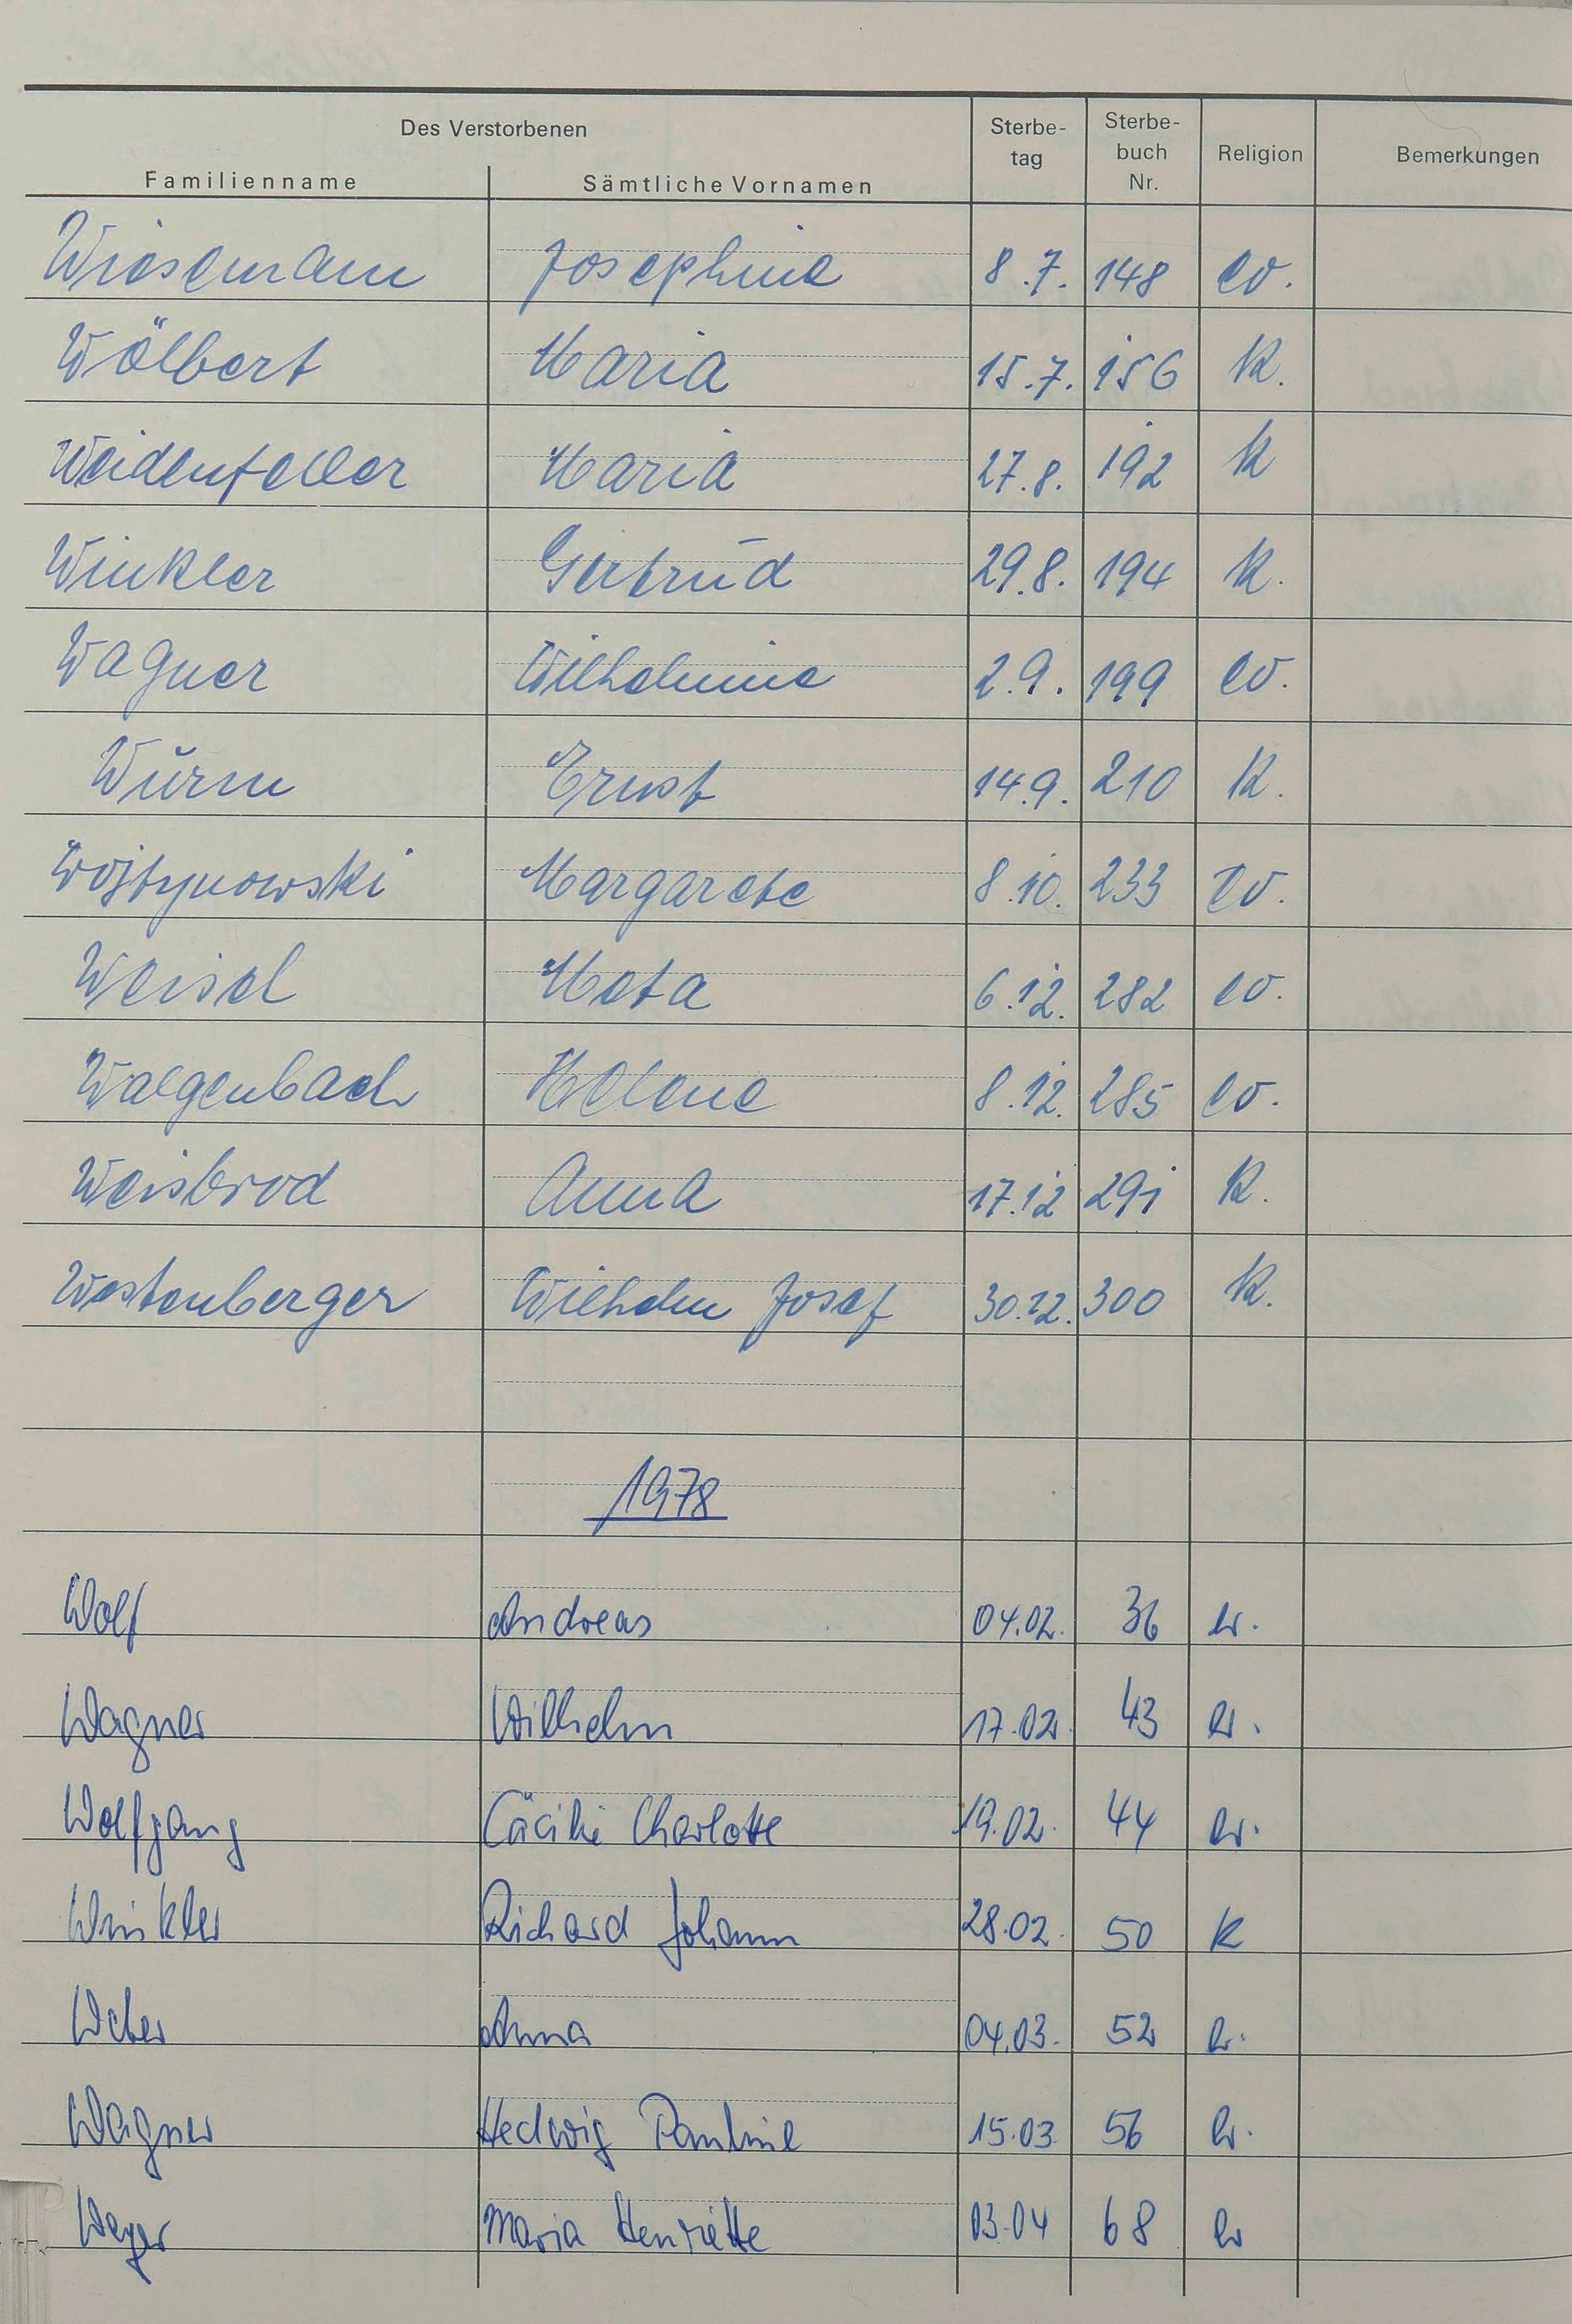 Des Verstorbenen
Familienname Sämtliche Vornamen Sterbe-tag Sterbe-buch Nr. Religion Bemerkungen
Wiesemann Josephine 8.7. 148 ev.
Wölbert Maria 15.7. 156 k.
Weidenfeller Maria 27.8. 192 k
Winkler Gertrud 29.8. 194 k.
Wagner Wilhelmine 2.9. 199 ev.
Wurm Ernst 14.9. 210 k.
Wojtynowski Margarete 8.10. 233 ev.
Weisel Meta 6.12. 282 ev.
Walgenbach Helene 8.12. 285 ev.
Weisbrod Anna 17.12 291 k.
Westenberger Wilhelm Josef 30.12. 300 k.
1978
Wolf Andreas 04.02. 36 ev.
Wagner Wilhelm 17.02. 43 ev.
Wolfgang Cäcilie Charlotte 19.02. 44 ev.
Winkler Richard Johann 28.02. 50 k
Weber Anna 04.03. 52 ev.
Wagner Hedwig Pauline 15.03. 56 ev.
Weyer Maria Henriette 03.04 68 ev